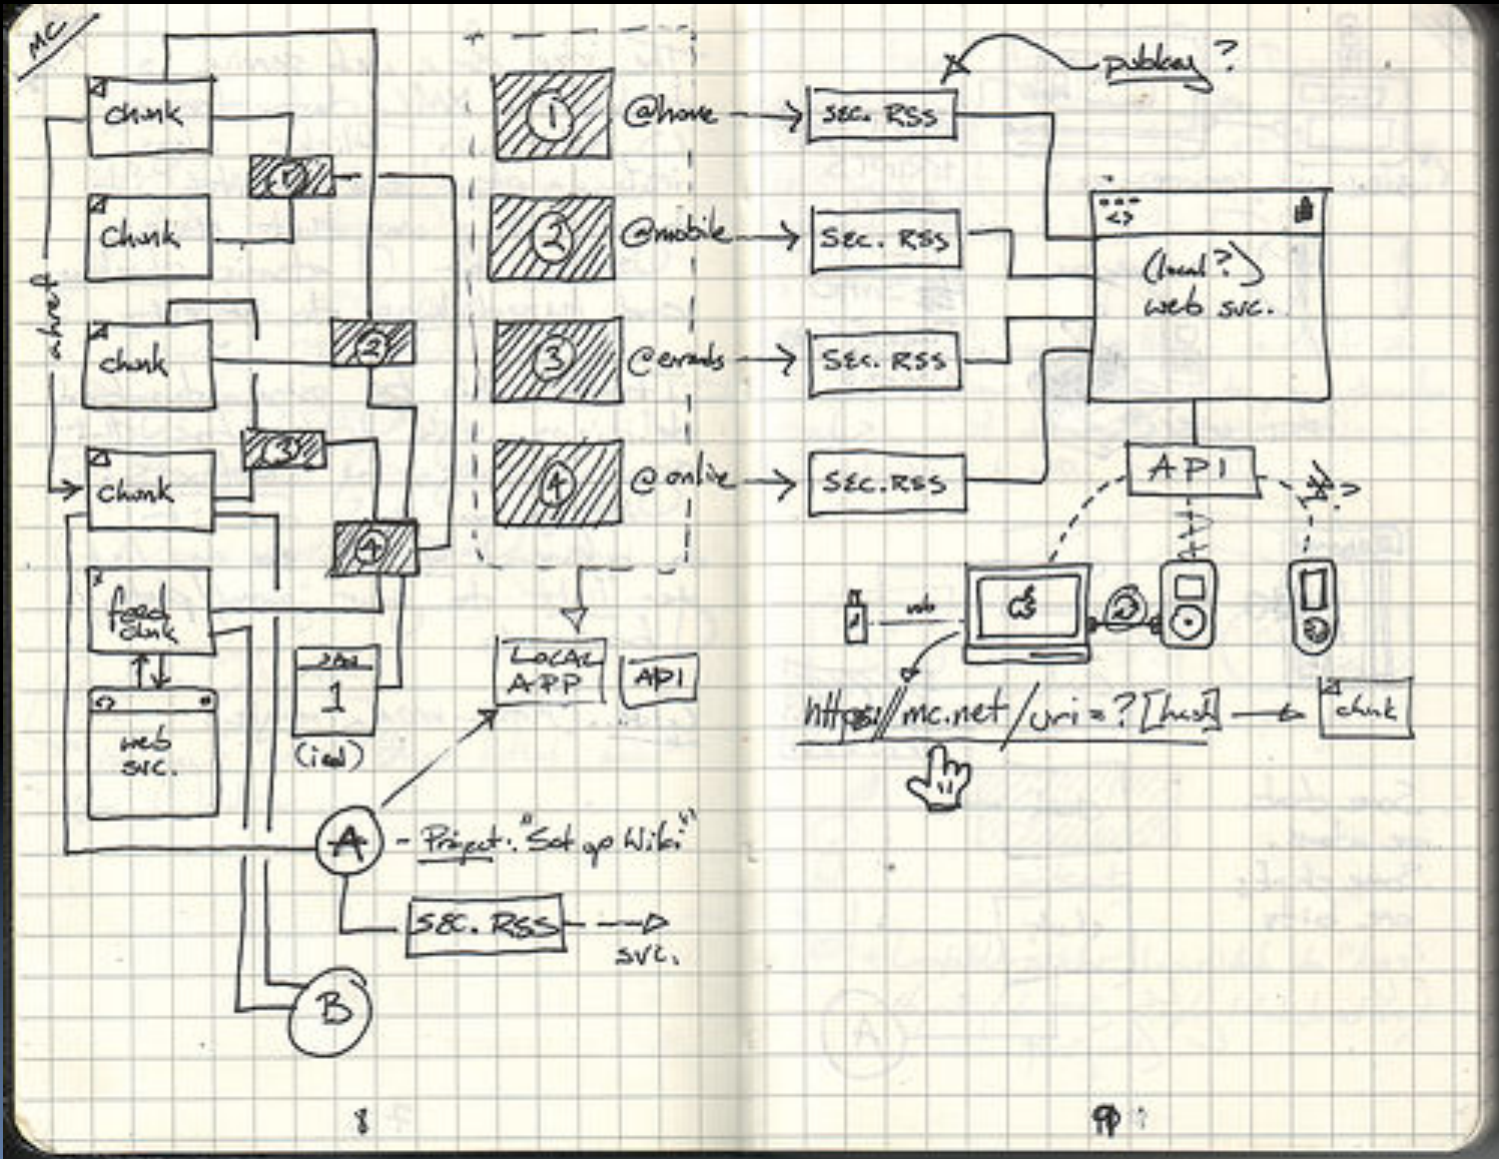 MC
chunk
1
chunk
ahref
chunk
2
3
chunk
4
feed
chunk
1
(ical)
web
svc.
1
@home
2
@mobile
3
@errands
4
@online
LOCAL
APP
API
A
- Project: "Set up Wiki"
SEC. RSS
svc.
B
8
pubkey?
SEC. RSS
SEC. RSS
SEC. RSS
SEC. RSS
<>
(local?)
web svc.
API
?
usb
https://mc.net/uri=?[hash]
chunk
9